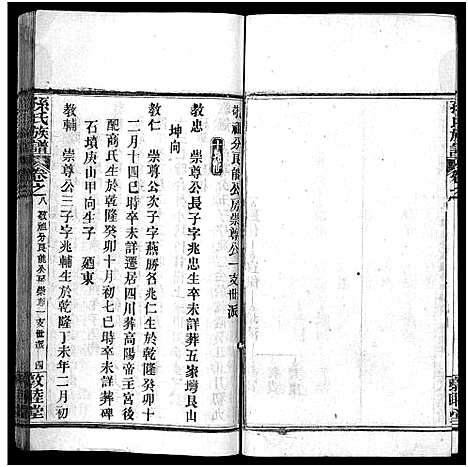 祖分良能公房崇尊公一支世派
教忠　崇尊公長子字兆忠生卒未詳葬五家塆艮山
坤向
教仁　崇尊公次子字燕勝名兆仁生於乾隆癸卯十
二月十四巳時卒未詳遷居四川葬高陽帝主宮後
配商氏生於乾隆癸卯十月初七巳時卒未詳葬碑
石墳庚山甲向生子　廼東
教輔　崇尊公三子字兆輔生於乾隆丁未年二月初
孫氏族譜
卷之八
祖分良能公房崇尊一支世派
四
敦睦堂